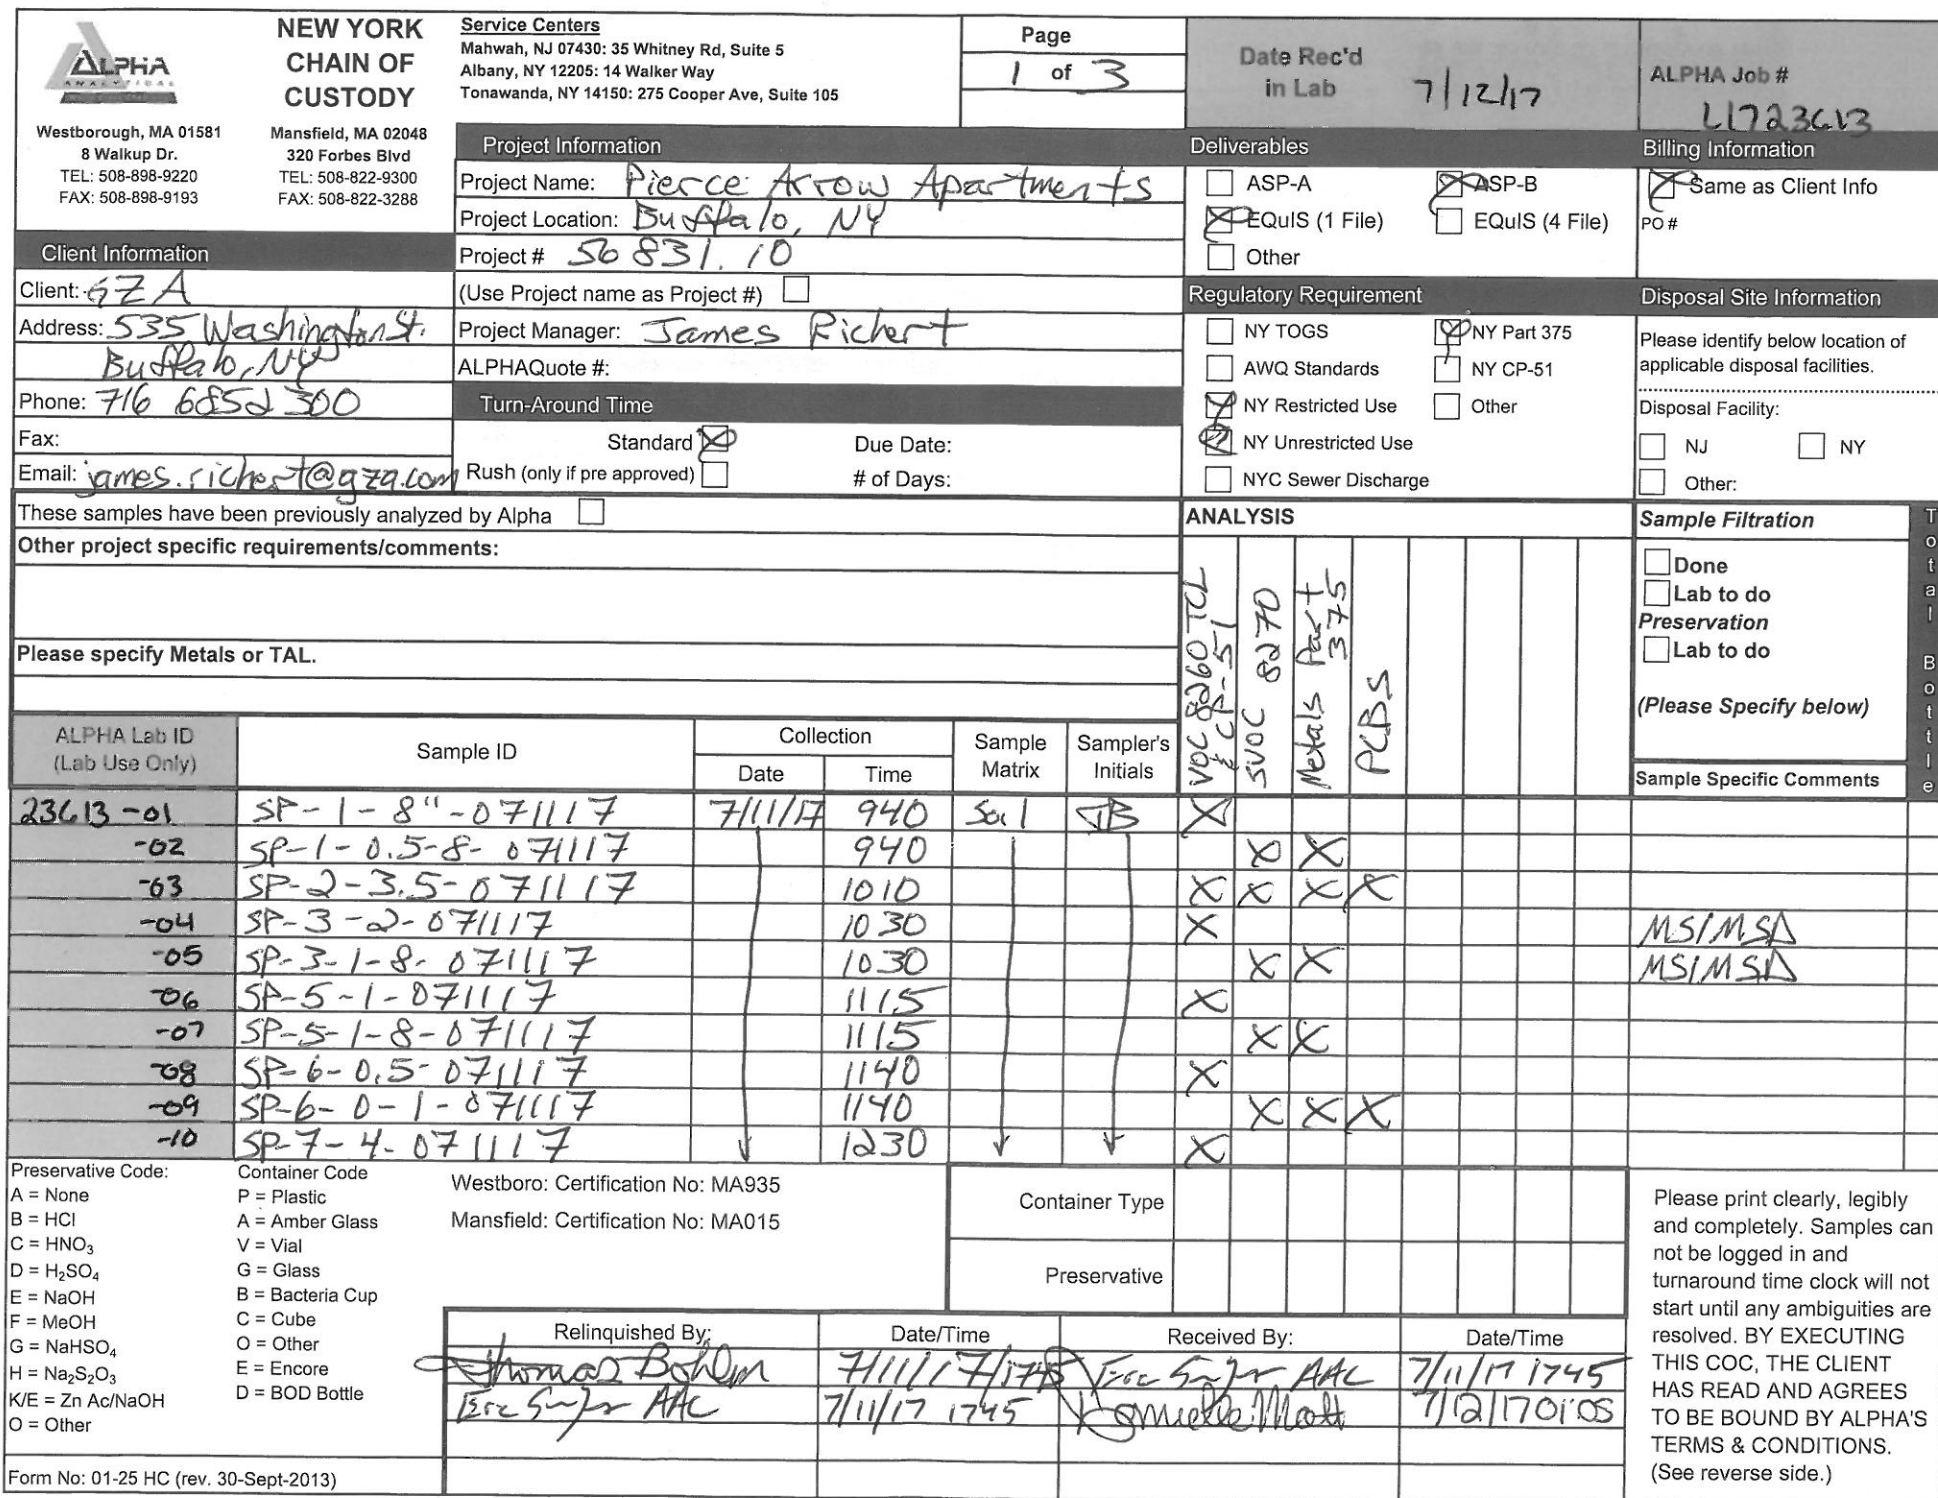 ALPHA
ANALYTICAL
NEW YORK
CHAIN OF
CUSTODY
Westborough, MA 01581
8 Walkup Dr.
TEL: 508-898-9220
FAX: 508-898-9193
Mansfield, MA 02048
320 Forbes Blvd
TEL: 508-822-9300
FAX: 508-822-3288
Service Centers
Mahwah, NJ 07430: 35 Whitney Rd, Suite 5
Albany, NY 12205: 14 Walker Way
Tonawanda, NY 14150: 275 Cooper Ave, Suite 105
Page
1 of 3
Date Rec'd
in Lab 7/12/17
ALPHA Job #
L1723613
Client Information
Client: GZA
Address: 535 Washington St.
Buffalo, NY
Phone: 716 6852300
Fax:
Email: james.richert@gza.com
Project Information
Project Name: Pierce Arrow Apartments
Project Location: Buffalo, NY
Project # 56831.10
(Use Project name as Project #)
Project Manager: James Richert
ALPHAQuote #:
Turn-Around Time
Standard X Due Date:
Rush (only if pre approved) # of Days:
Deliverables
ASP-A X ASP-B
X EQuIS (1 File) EQuIS (4 File)
Other
Regulatory Requirement
NY TOGS X NY Part 375
AWQ Standards NY CP-51
X NY Restricted Use Other
X NY Unrestricted Use
NYC Sewer Discharge
Billing Information
X Same as Client Info
PO #
Disposal Site Information
Please identify below location of
applicable disposal facilities.
Disposal Facility:
NJ NY
Other:
These samples have been previously analyzed by Alpha
Other project specific requirements/comments:
Please specify Metals or TAL.
ANALYSIS
VOC 8260 TCL
& CP-51
SVOC 8270
Metals Part
375
PCBs
Sample Filtration
Done
Lab to do
Preservation
Lab to do
(Please Specify below)
Total Bottle
ALPHA Lab ID
(Lab Use Only)
Sample ID
Collection
Date Time
Sample
Matrix
Sampler's
Initials
Sample Specific Comments
23613-01 SP-1-8"-071117 7/11/17 940 Soil TB X
-02 SP-1-0.5-8-071117 940 X X
-03 SP-2-3.5-071117 1010 X X X X
-04 SP-3-2-071117 1030 X MS/MSD
-05 SP-3-1-8-071117 1030 X X MS/MSD
-06 SP-5-1-071117 1115 X
-07 SP-5-1-8-071117 1115 X X
-08 SP-6-0.5-071117 1140 X
-09 SP-6-0-1-071117 1140 X X X
-10 SP-7-4-071117 1230 X
Preservative Code:
A = None
B = HCl
C = HNO₃
D = H₂SO₄
E = NaOH
F = MeOH
G = NaHSO₄
H = Na₂S₂O₃
K/E = Zn Ac/NaOH
O = Other
Container Code
P = Plastic
A = Amber Glass
V = Vial
G = Glass
B = Bacteria Cup
C = Cube
O = Other
E = Encore
D = BOD Bottle
Westboro: Certification No: MA935
Mansfield: Certification No: MA015
Container Type
Preservative
Relinquished By: Date/Time Received By: Date/Time
Thomas Bohlen 7/11/17/1745 Eric AAC 7/11/17 1745
Eric AAC 7/11/17 1745 7/12/17 01:05
Please print clearly, legibly
and completely. Samples can
not be logged in and
turnaround time clock will not
start until any ambiguities are
resolved. BY EXECUTING
THIS COC, THE CLIENT
HAS READ AND AGREES
TO BE BOUND BY ALPHA'S
TERMS & CONDITIONS.
(See reverse side.)
Form No: 01-25 HC (rev. 30-Sept-2013)